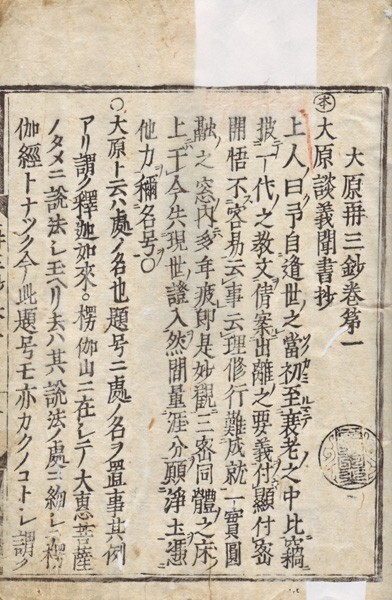 大原冊三鈔巻第一
本 大原談義聞書抄
上人曰予自遁世之當初至衰老之中比竊
披一代之教文倩案出離之要義付顯付密
開悟不容易云事云理修行難成就一實圓
融之窓内多年疲即是妙觀三密同體之床
上于今失現世證入然間量涯分願淨土憑
他力稱名号〇
〇大原ト云ハ處ノ名也題号ニ處ノ名ヲ置事其例
アリ謂ク釋迦如來。楞伽山ニ在シテ大惠菩薩
ノタメニ説法シ玉ヘリ去ハ其説法ノ處ニ約シテ楞
伽經トナツク今此題号モ亦カクノコトシ謂ク